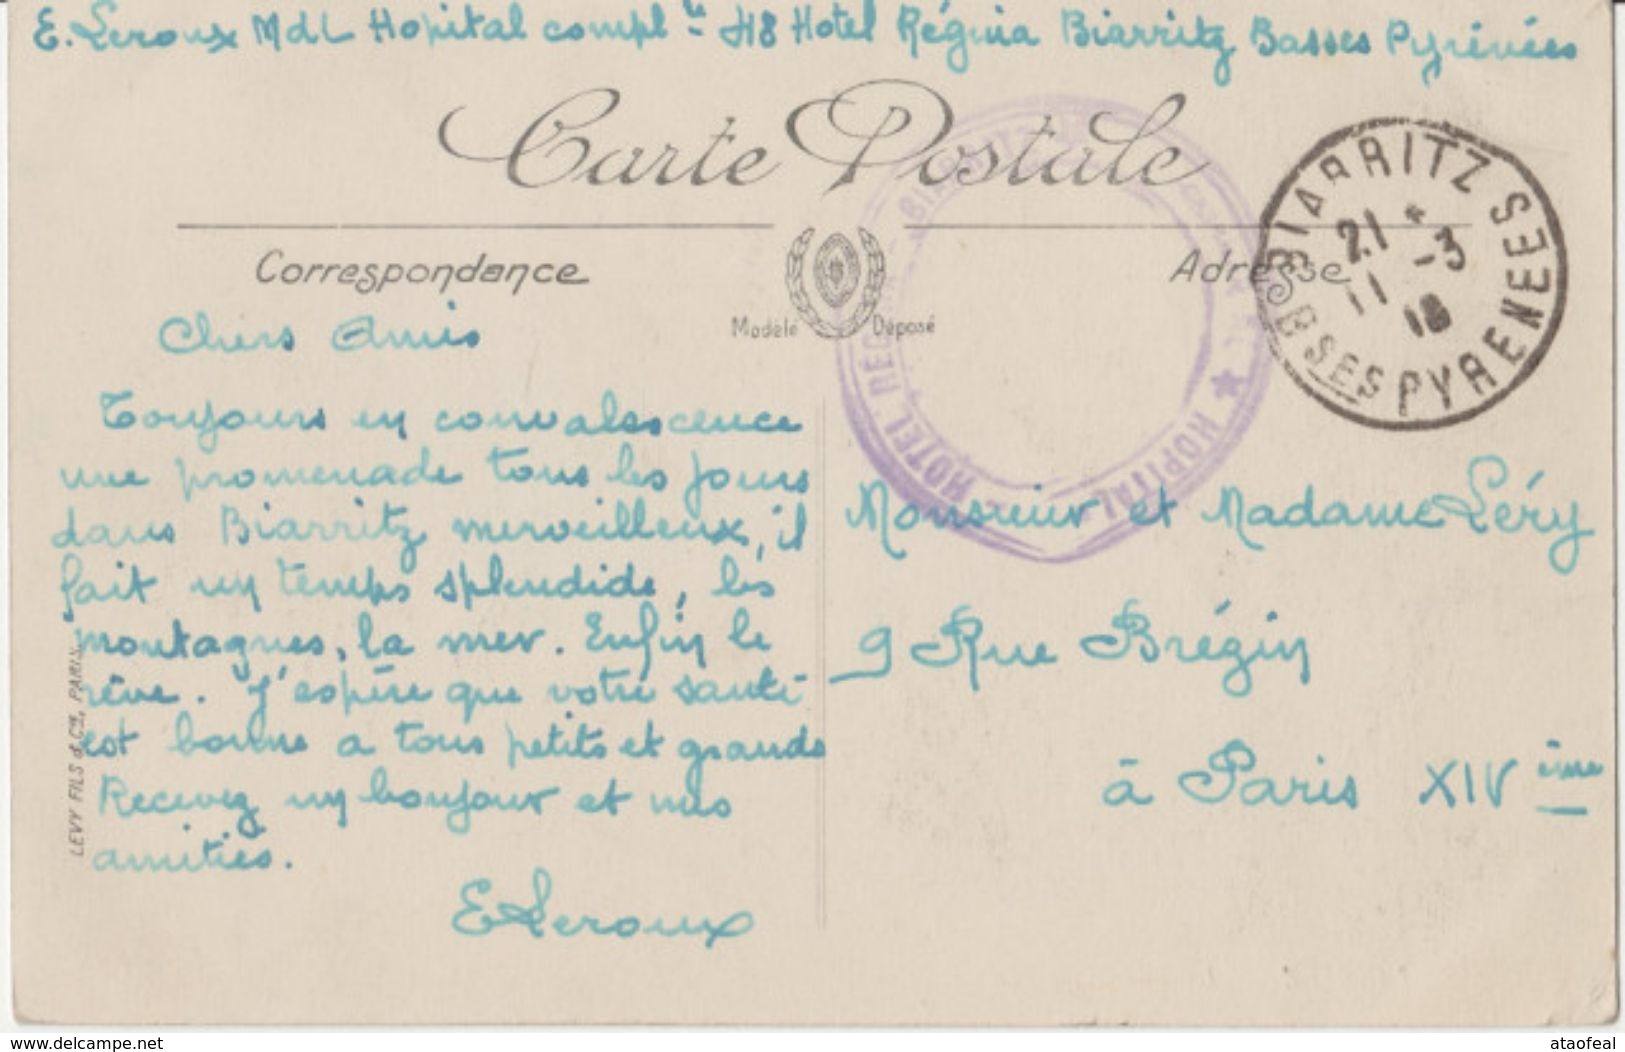 E. Leroux MdL Hopital compl re H8 Hotel Régina Biarritz Basses Pyrénées
Carte Postale
Correspondance
Adresse
Modèle Déposé
BIARRITZ
BSES PYRENEES
21 * 11 -3 18
HOPITAL
HOTEL REGINA
BIARRITZ
Chers Amis
Toujours en convalescence
une promenade tous les jours
dans Biarritz merveilleux, il
fait un temps splendide, les
montagnes, la mer. Enfin le
rêve. J'espère que votre santé
est bonne a tous petits et grands
Recevez un bonjour et mes
amitiés.
E Leroux
Monsieur et Madame Léry
9 Rue Brézin
à Paris XIV ème
LEVY FILS & Cie, PARIS
www.delcampe.net
ataofeal